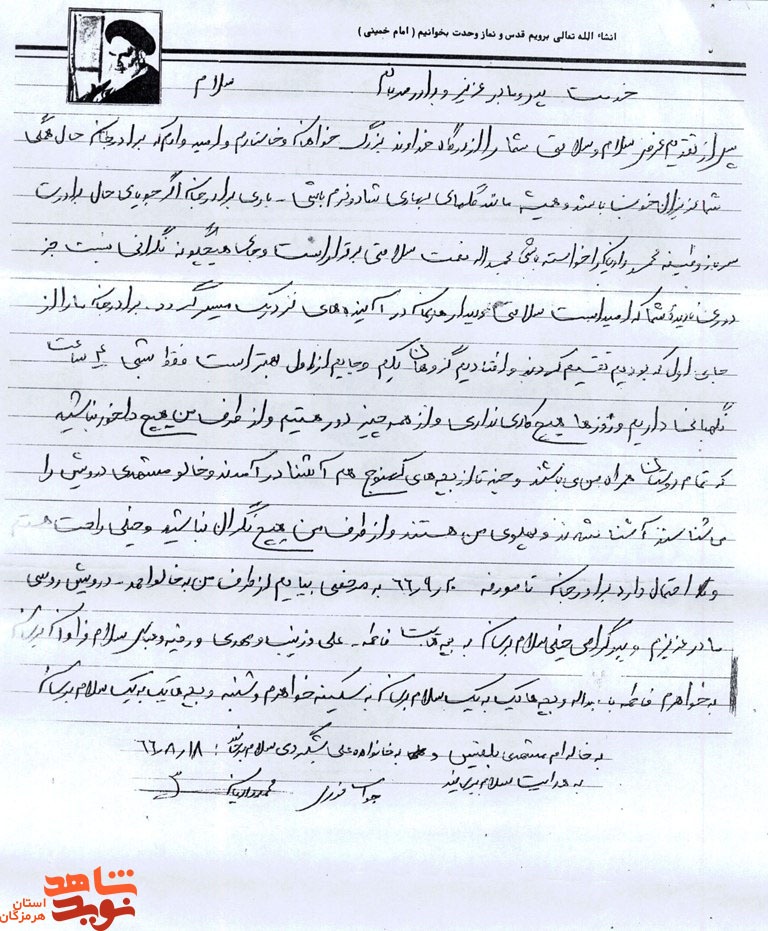 انشاء الله تعالی برویم قدس و نماز وحدت بخوانیم ( امام خمینی )
خدمت پدر و مادر عزیز و برادر مهربانم سلام
پس از تقدیم عرض سلام و سلامتی شما را از درگاه خداوند بزرگ خواهان و خواستارم و امیدوارم که برادرجان حال همگی
شما عزیزان خوب باشد و همیشه مانند گلهای بهاری شاد و خرم باشی - باری برادر جان اگر جویای حال برادرت
سرباز وظیفه محمود را خواسته باشی بحمدالله نعمت سلامتی برقرار است و جای هیچگونه نگرانی نیست جز
دوری شما که امید است سلامتی دیدار هم در آینده های نزدیک میسر گردد. برادر جان ما را از
جای اول که بودیم تقسیم کردند و افتادیم گروهان یکم و جایم از اول بهتر است فقط شبی ۴ ساعت
نگهبانی داریم و روزها هیچ کاری نداری و از همه چیز دور هستیم و از طرف من هیچ دلخور نباشید
که تمام دوستان همراه من می باشند و چند تا از بچه های کهنوج هم آشنا در آمدند و خالو مشهدی درویش را
می شناسند آشنا شدند و پهلوی من هستند و از طرف من هیچ نگران نباشید و خیلی راحت هستم
و احتمال دارد برادر جان تا مورخه ۶۶/۹/۲۰ به مرخصی بیایم از طرف من به خالو احمد - درویش - روسی
مادر عزیزم و پدر گرامی خیلی سلام برسان به بچه هایت فاطمه - علی و زینب و مهدی و رقیه و عباس سلام فراوان برسان
به خواهرم فاطمه با عبداله و بچه ها یک به یک سلام برسان به سکینه خواهرم و شنبه و بچه ها یک به یک سلام برسان
به خاله ام مشهدی بلقیس و به خانواده علی شگردی سلام برسان ۶۶/۸/۱۸
به هدایت سلام برسانید جواب فوری محمود
شاهد
نوید
استان
هرمزگان